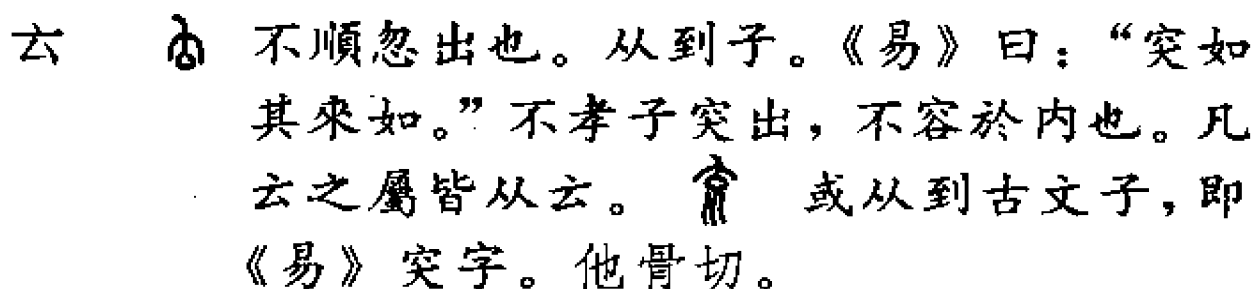 𠫓 不順忽出也。从到子。《易》曰：“突如
其來如。”不孝子突出，不容於内也。凡
𠫓之屬皆从𠫓。 或从到古文子，即
《易》突字。他骨切。